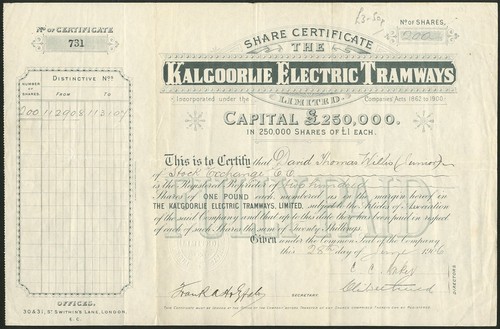 No. OF CERTIFICATE
731
£3-50p
No. OF SHARES.
200
SHARE CERTIFICATE
THE
KALGOORLIE ELECTRIC TRAMWAYS
LIMITED.
Incorporated under the Companies Acts 1862 to 1900.
CAPITAL £250,000.
IN 250,000 SHARES OF £1 EACH.
DISTINCTIVE Nos.
NUMBER OF SHARES. FROM TO
200 112908 113107
This is to Certify that David Thomas
of Stock Exchange E.C.
is the Registered Proprietor of Two hundred
Shares of ONE POUND each, numbered as in the margin hereof in
THE KALGOORLIE ELECTRIC TRAMWAYS, LIMITED, subject to the Articles of Association
of the said Company and that up to this date there has been paid in respect
of each of such Shares the sum of Twenty Shillings.
FULLY PAID
Given under the Common Seal of the Company
this 28th day of
DIRECTORS
SECRETARY
OFFICES.
30 & 31, St SWITHINS LANE, LONDON.
E.C.